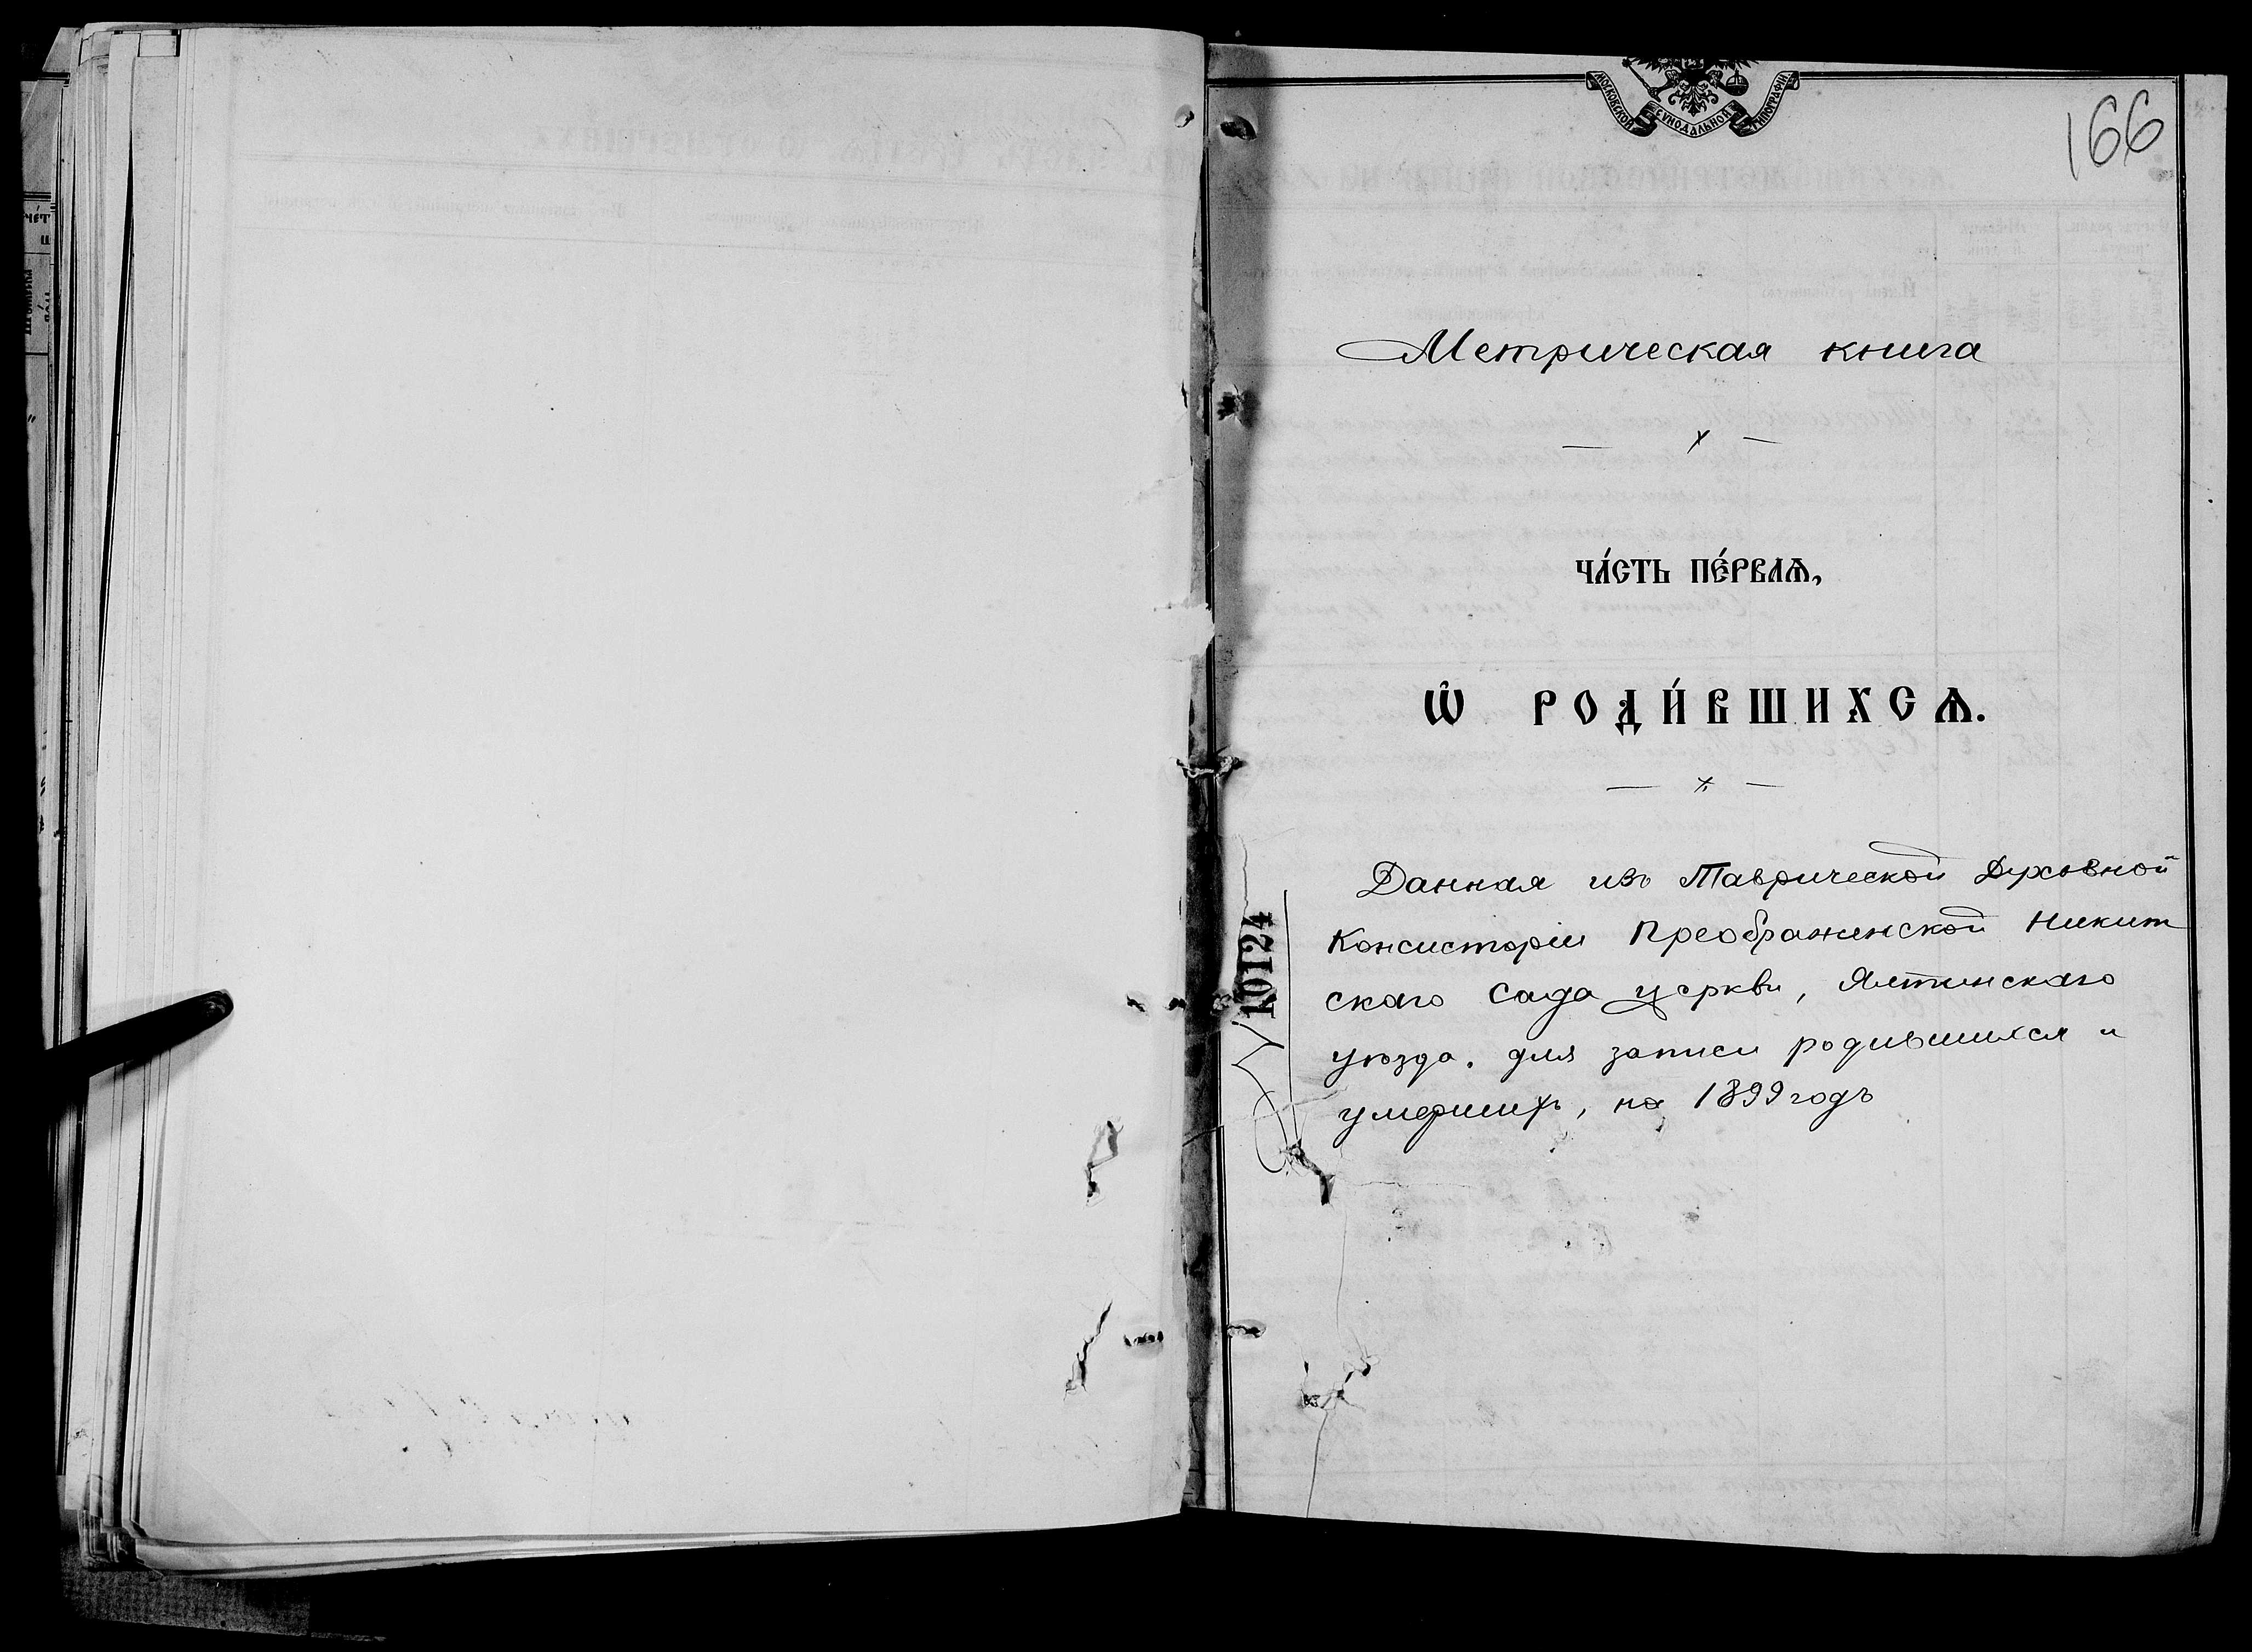 МОСКОВСКОЙ СѴНОДАЛЬНОЙ ТИПОГРАФІИ.
166
Метрическая книга
ЧА́СТЬ ПЕ́РВАѦ,
Ѡ҆ РОДИ́ВШИХСѦ.
Данная изъ Таврической Духовной
Консисторіи Преображенской Никит
скаго сада церкви, Ялтинскаго
уѣзда. для записи родившихся и
умершихъ, на 1899 годъ
10124